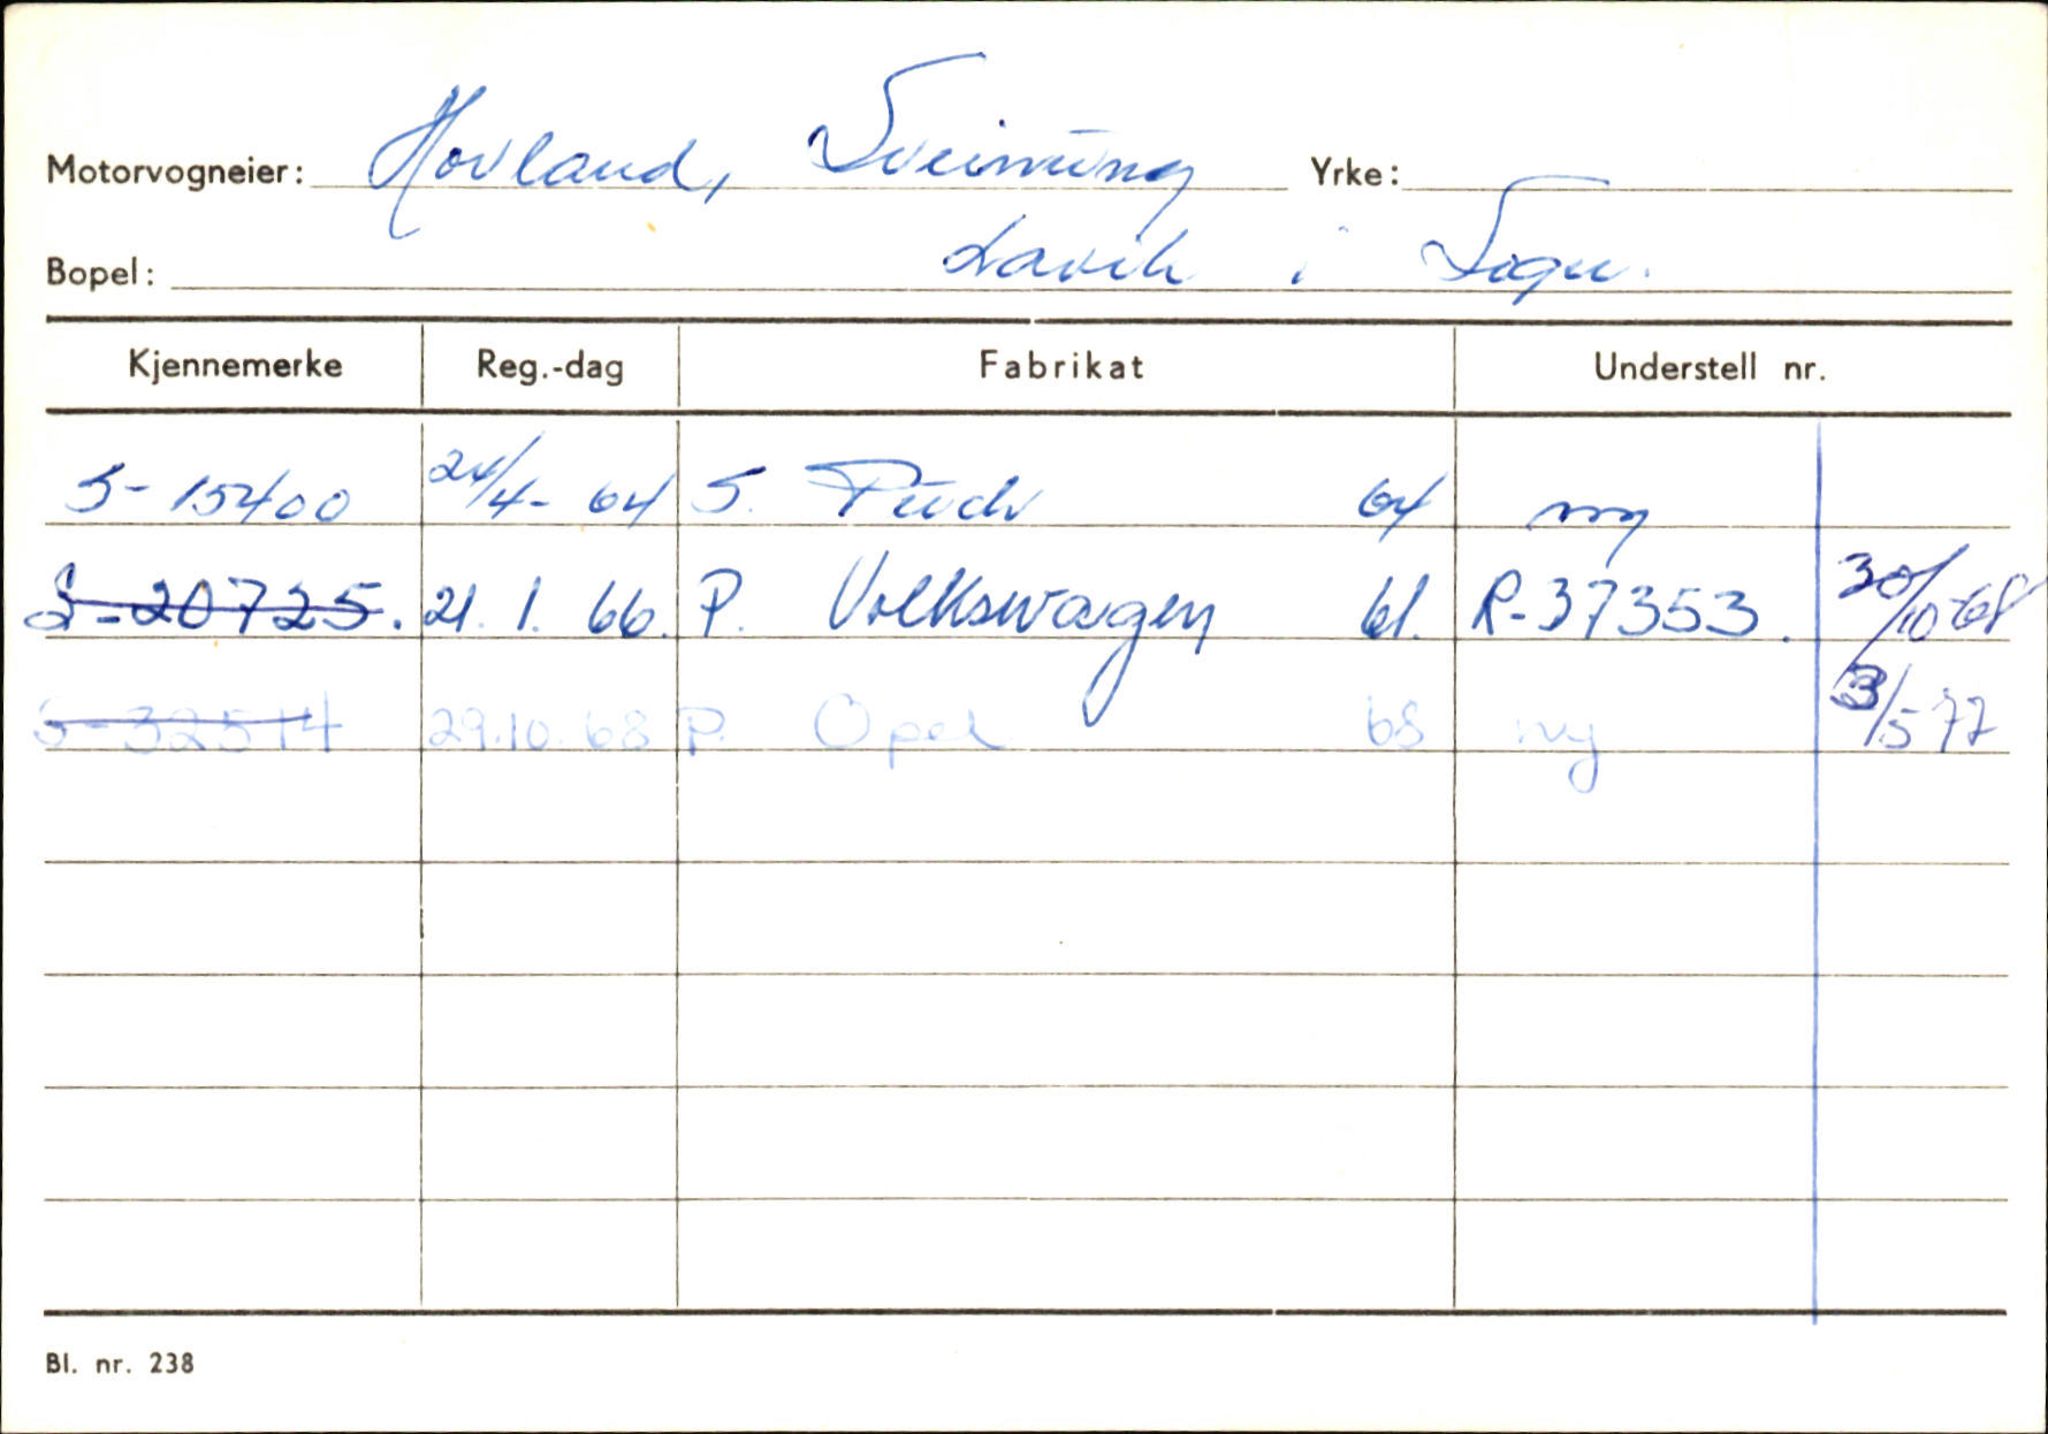 Motorvogneier: Hovland, Sveinung Yrke:
Bopel: Lavik i Sogn.
Kjennemerke Reg.-dag Fabrikat Understell nr.
S-15400 24/4-64 S. Puch 64 ny
S-20725. 21.1.66. P. Volkswagen 61. R-37353. 30/10-68
S-32514 29.10.68 P. Opel 68 ny 3/5 77
Bl. nr. 238